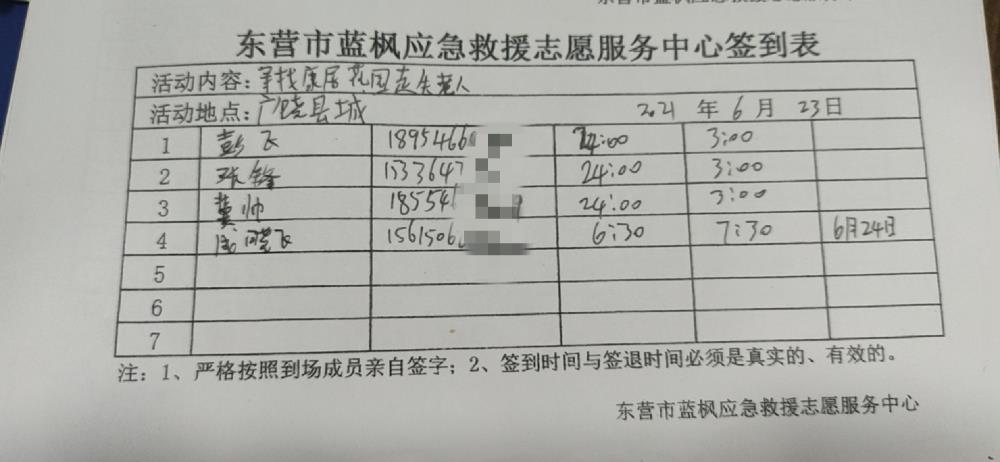 东营市蓝枫应急救援志愿服务中心签到表
活动内容:寻找康居花园走失老人
活动地点:广饶县城 2021 年 6 月 23日
1 彭飞 1895466 24:00 3:00
2 张锋 1533647 24:00 3:00
3 黄帅 18554 24:00 3:00
4 周晓飞 1561506 6:30 7:30 6月24日
5
6
7
注:1、严格按照到场成员亲自签字;2、签到时间与签退时间必须是真实的、有效的。
东营市蓝枫应急救援志愿服务中心